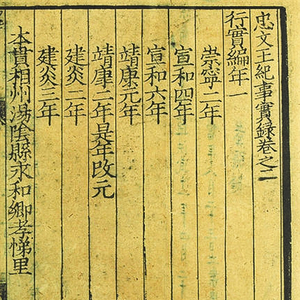 忠文王紀事實錄卷之二
行實編年一
崇寧二年
宣和四年
宣和六年
靖康元年
靖康二年是年改元
建炎二年
建炎三年
本貫相州湯陰縣永和鄉孝悌里